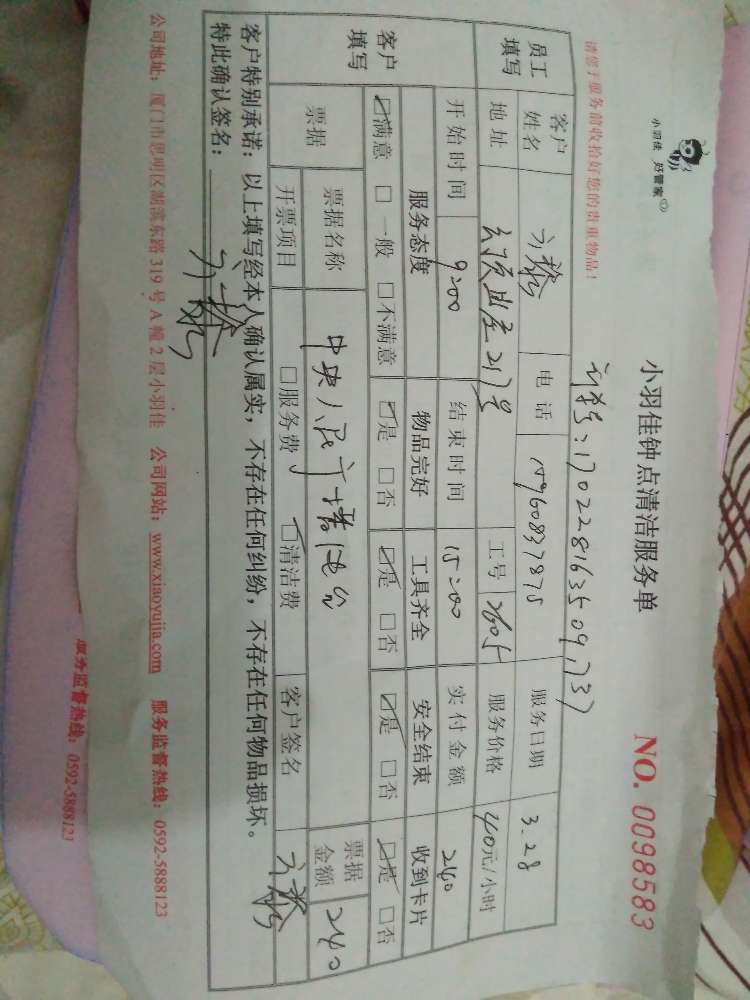 小羽佳 好管家
小羽佳钟点清洁服务单
NO. 0098583
请您于服务前收拾好您的贵重物品!
员工填写
客户姓名
电话 15960837875
服务日期 3.28
地址
217号
工号 2605
服务价格 40元/小时
开始时间 9:00
结束时间 15:00
实付金额 240
客户填写
服务态度 物品完好 工具齐全 安全结束 收到卡片
☑满意 □一般 □不满意 ☑是 □否 ☑是 □否 ☑是 □否 ☑是 □否
票据
票据名称
票据金额 240
开票项目 □服务费 ☑清洁费 客户签名
客户特别承诺:以上填写经本人确认属实,不存在任何纠纷,不存在任何物品损坏。
特此确认签名:
公司地址:厦门市思明区湖滨东路 319 号 A 幢 2 层小羽佳 公司网站:www.xiaoyujia.com 服务监督热线:0592-5888123
服务监督热线:0592-5888123